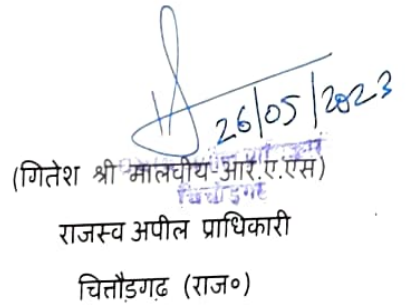 26/05/2023
(गितेश श्री मालवीय-आर.ए.एस)
राजस्व अपील प्राधिकारी
चित्तौड़गढ़ (राज०)